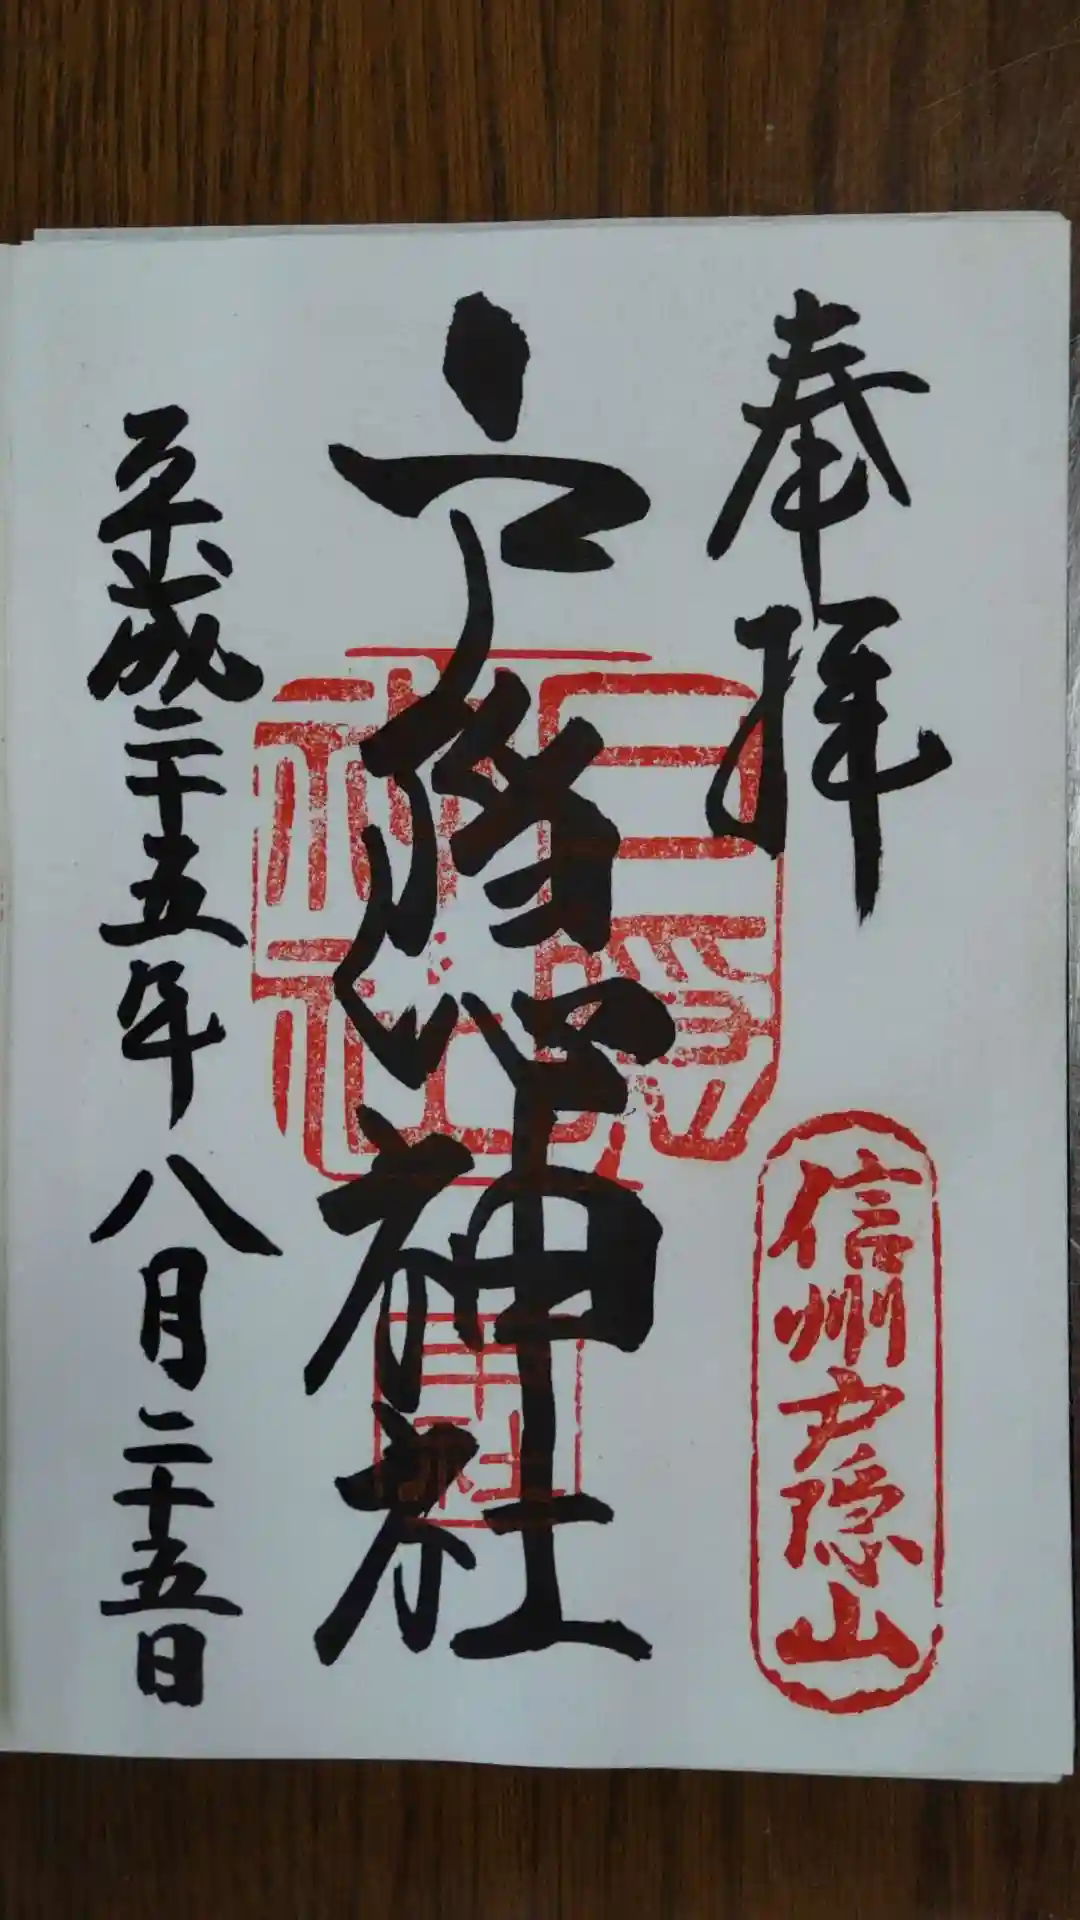 奉拝
信州戸隠山
戸隠神社
戸隠
神社
中社
平成二十五年八月二十五日